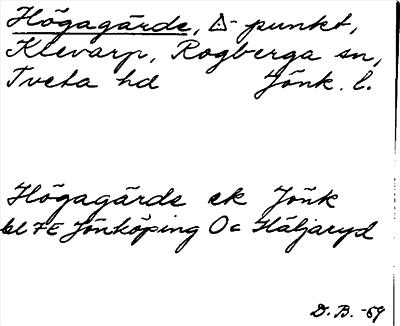 Högagärde, △-punkt,
Klevarp, Rogberga sn,
Tveta hd Jönk. l.
Högagärde ek Jönk
bl 7E Jönköping Oc Häljaryd
D. B. -69